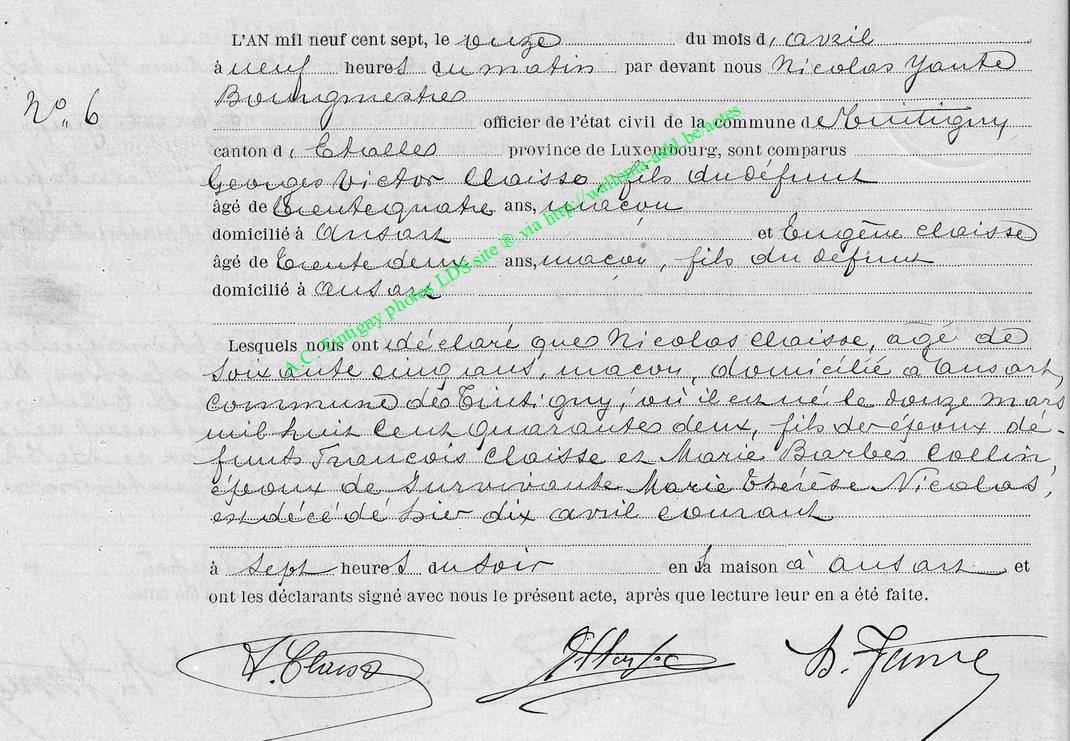 L'AN mil neuf cent sept, le onze du mois d, avril
à neuf heures du matin par devant nous Nicolas
Bourgmestre
No 6
officier de l'état civil de la commune de Tintigny
canton d, Etalle province de Luxembourg, sont comparus
Georges Victor Claisse, fils du défunt
âgé de trente quatre ans, maçon
domicilié à ansart et Eugène Claisse
âgé de trente deux ans, maçon, fils du défunt
domicilié à ansart
Lesquels nous ont déclaré que Nicolas Claisse, agé de
soixante cinq ans, maçon, domicilié à ansart,
commune de Tintigny, où il est né le douze mars
mil huit cent quarante deux, fils des époux dé-
funts François Claisse et Marie Barbe Collin,
époux de survivante Marie Thérèse Nicolas,
est décédé hier dix avril courant
à sept heures du soir en sa maison à ansart et
ont les déclarants signé avec nous le présent acte, après que lecture leur en a été faite.
A.C. Tintigny photos LDS site ® via http://wallonia-asbl.be/actes